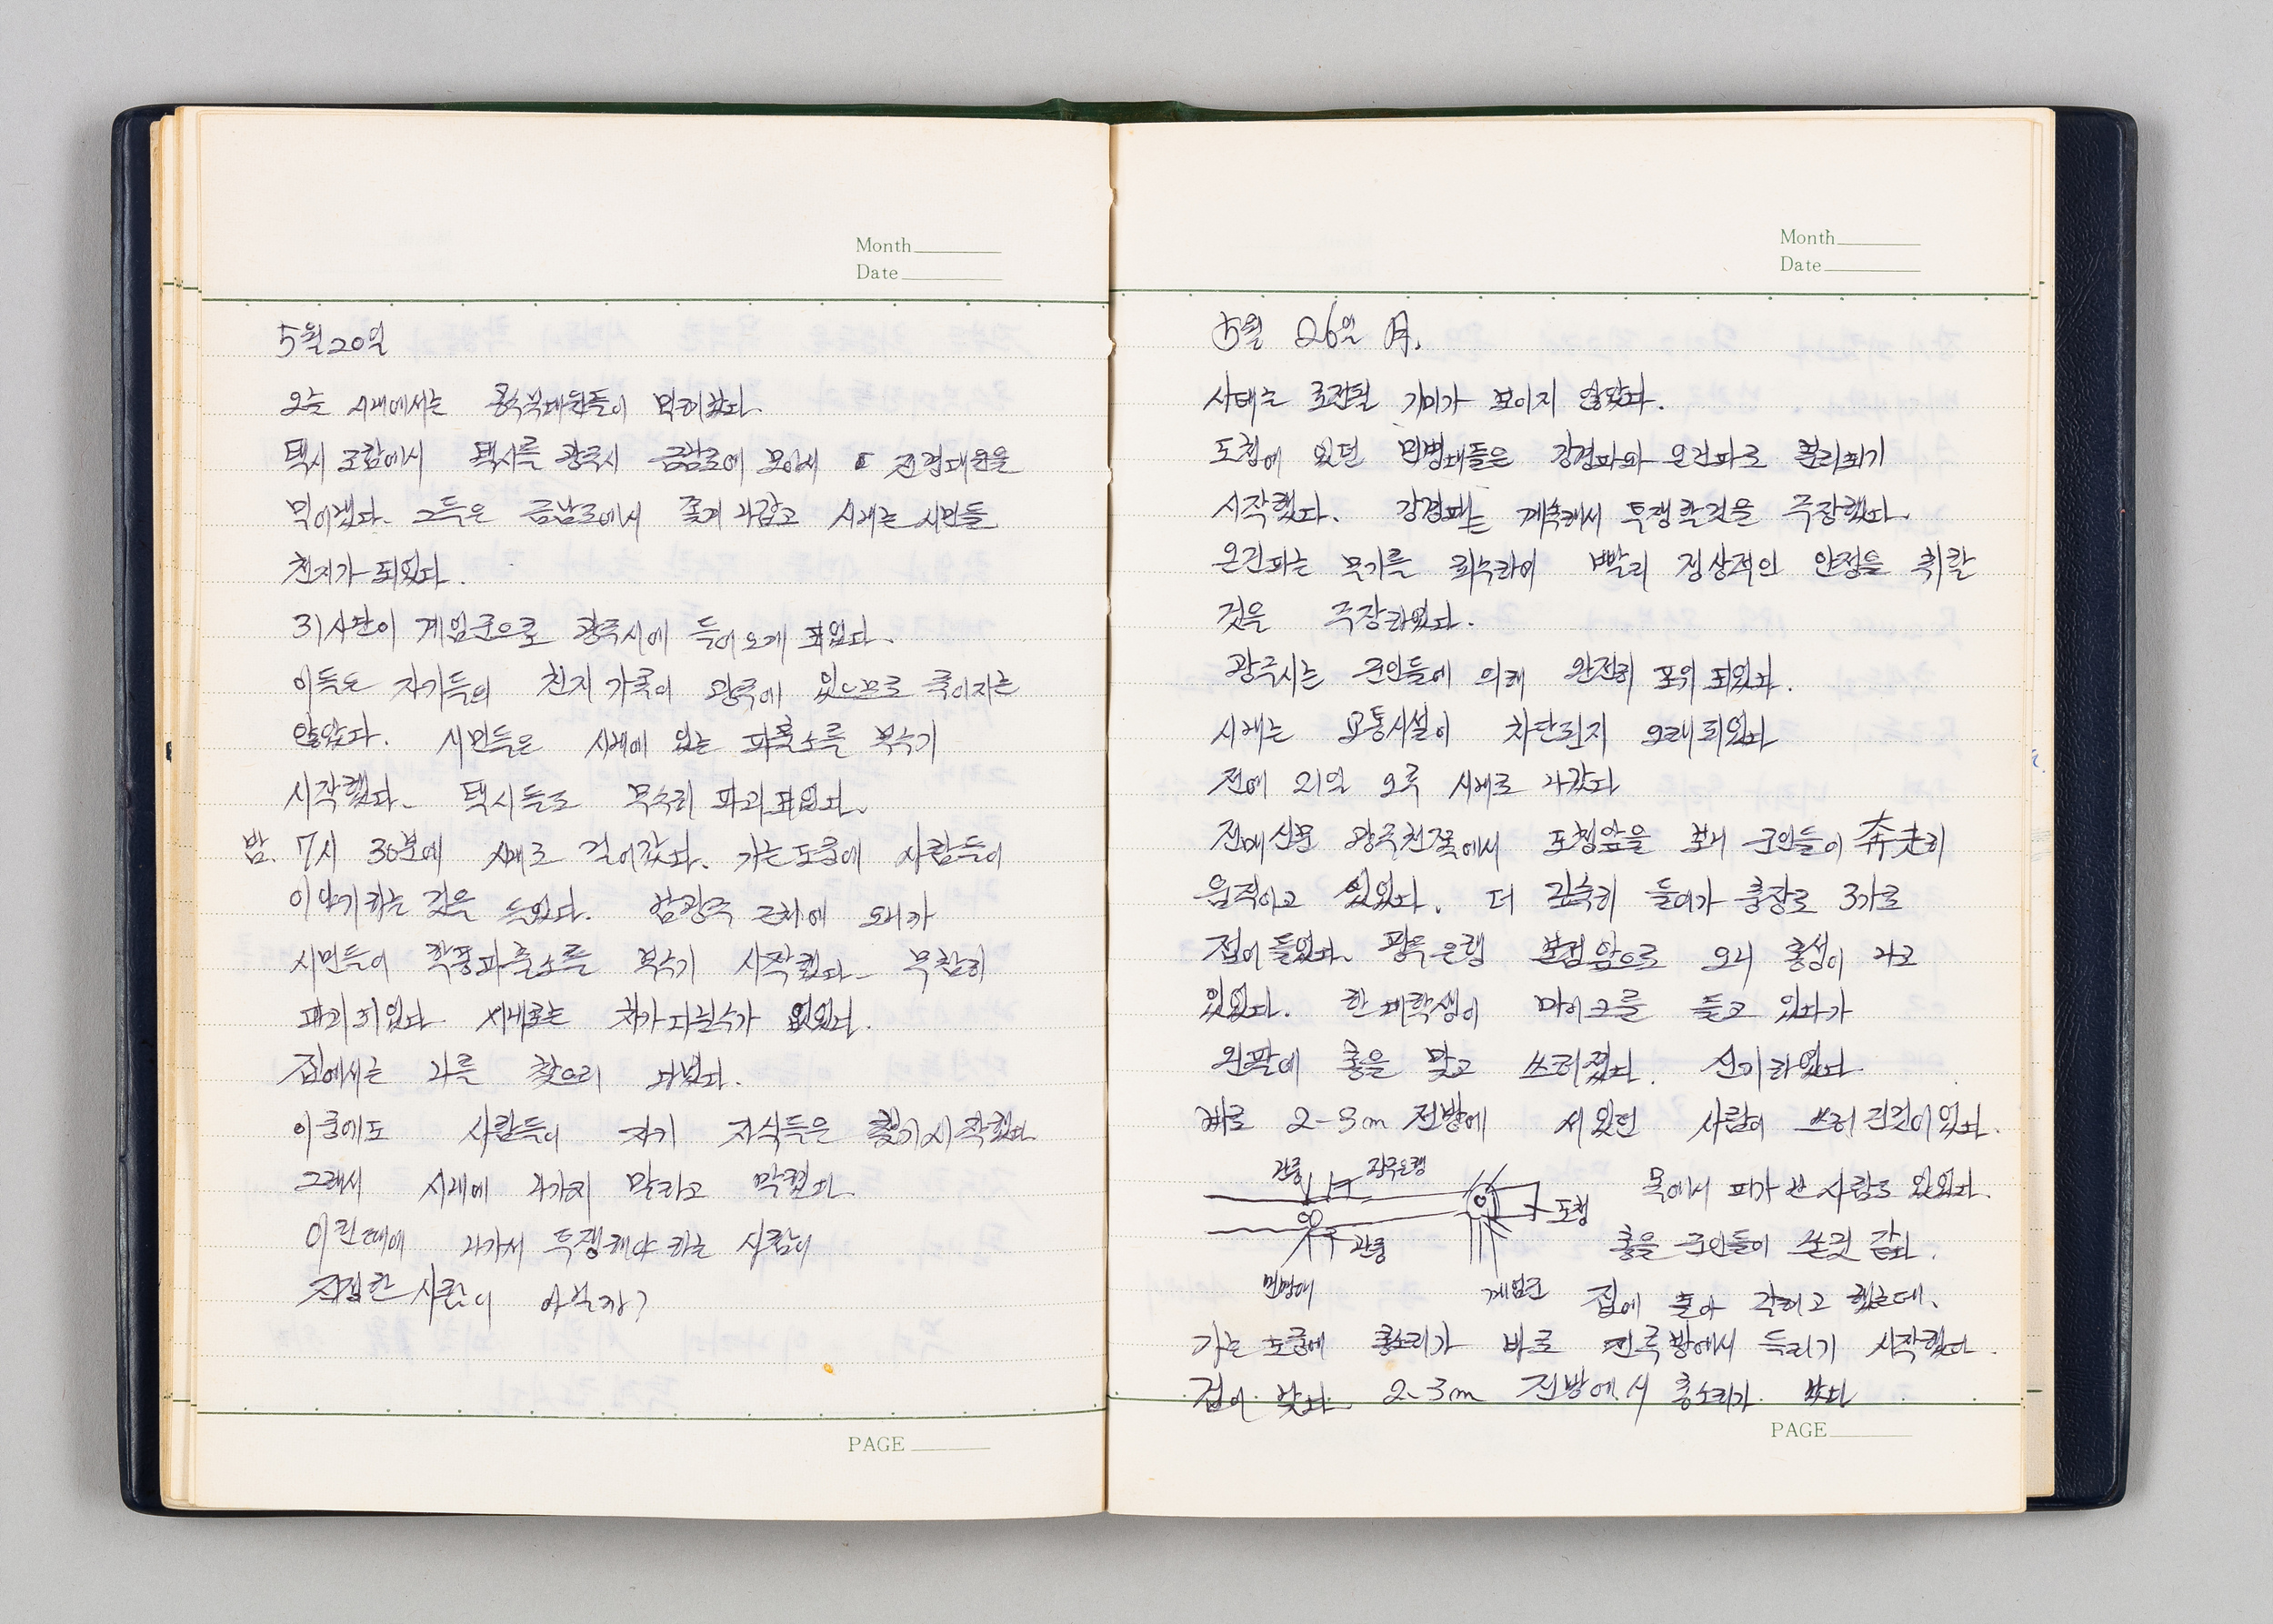 Month
Date
5월 20일
오늘 시내에서는 공수부대원들이 밀리었다.
택시 조합에서 택시를 광주시 금남로에 모아서 전경대원을
밀어냈다. 그들은 금남로에서 쫓겨 나갔고 시내는 시민들
천지가 되었다.
31사단이 계엄군으로 광주시에 들어오게 되었다.
이들도 자기들의 친지 가족이 광주에 있으므로 죽이지는
않았다. 시민들은 시내에 있는 파출소를 부수기
시작했다. 택시들도 무수히 파괴되었다.
밤. 7시 30분에 시내로 걸어갔다. 가는 도중에 사람들이
이야기하는 것을 들었다. 남광주 근처에 오니까
시민들이 학동파출소를 부수기 시작했다. 무참히
파괴되었다 시내로는 차가 다닐수가 없었다.
집에서는 나를 찾으러 다녔다.
이중에도 사람들이 자기 자식들은 찾기 시작했다.
그래서 시내에 나가지 말라고 막했다.
이런때에 나가서 투쟁해야 하는 사람이
진정한 사람이 아닐까?
PAGE
Month
Date
5월 26일 月.
사태는 호전될 기미가 보이지 않았다.
도청에 있던 민병대들은 강경파와 온건파로 분리되기
시작했다. 강경파는 계속해서 투쟁할것을 주장했다.
온건파는 무기를 회수하여 빨리 정상적인 안정을 취할
것을 주장하였다.
광주시는 군인들에 의해 완전히 포위 되었다.
시내는 교통시설이 차단된지 오래되었다
전에 21일 오후 시내로 나갔다
전매신문 광주천쪽에서 도청앞을 보니 군인들이 奔走히
움직이고 있었다. 더 깊숙히 들어가 충장로 3가로
접어들었다. 광주은행 본점앞으로 오니 총성이 나고
있었다. 한 대학생이 마이크를 들고 있다가
왼팔에 총을 맞고 쓰러졌다. 신기하였다.
바로 2-3m 전방에 서있던 사람이 쓰러진것이었다.
관중 광주은행 목에서 피가 난 사람도 있었다.
도청
관중 총을 군인들이 쏜것 같다.
민병대 계엄군 집에 돌아 갈려고 했는데.
가는 도중에 총소리가 바로 전방에서 들리기 시작했다.
겁이 났다. 2-3m 전방에서 총소리가 났다
PAGE